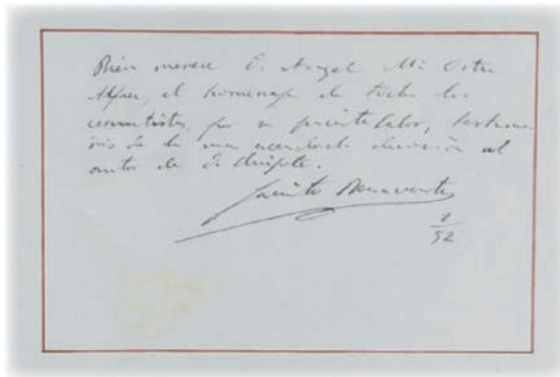 Bien merece D. Angel Mª Ortiz
Alfau, el homenaje de todos los
cervantistas, por su paciente labor, testimo
nio de la mas acendrada devoción al
autor de D. Quijote.
Jacinto Benavente
2
52